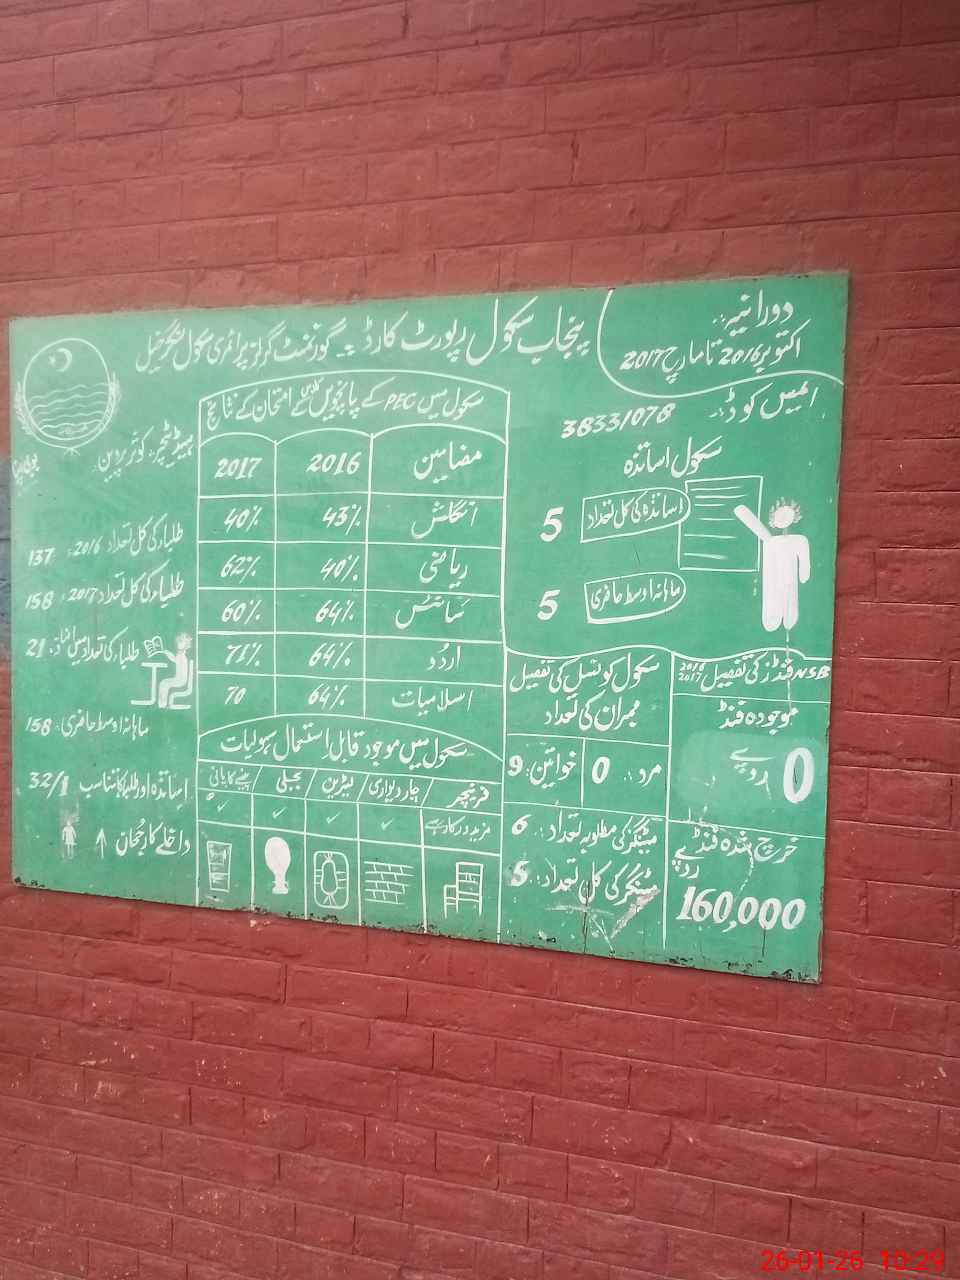 پنجاب سکول رپورٹ کارڈ :۔ گورنمنٹ گرلز پرائمری سکول
دورانیہ:۔
اکتوبر 2016 تا مارچ 2017
ایمیس کوڈ:۔
38331078
سکول اساتذہ
اساتذہ کی کل تعداد
5
ماہانہ اوسط حاضری
5
سکول میں PEC کے پانچویں کلاس کے امتحان کے نتائج
مضامین 2016 2017
انگلش 43% 40%
ریاضی 40% 62%
سائنس 64% 60%
اردو 64% 71%
اسلامیات 64% 70
سکول میں موجود قابل استعمال سہولیات
فرنیچر / چاردیواری / لیٹرین / بجلی / پینے کا پانی
مزید درکار ہے ✓ ✓ ✓ ✓
ہیڈ ٹیچر: کوثر پروین
طلباء کی کل تعداد 2016: 137
طلباء کی کل تعداد 2017: 158
طلباء کی تعداد میں اضافہ: 21
ماہانہ اوسط حاضری: 158
اساتذہ اور طلبا کا تناسب 32/1
داخلے کا رجحان ↑
سکول کونسل کی تفصیل
ممبران کی تعداد
مرد:۔ 0
خواتین: 9
میٹنگز کی مطلوبہ تعداد:۔ 6
میٹنگز کی کل تعداد:۔ 5
NSB فنڈز کی تفصیل 2016 2017
موجودہ فنڈ
0 روپے
خرچ شدہ فنڈ
روپے
160,000
26-01-26 10:29